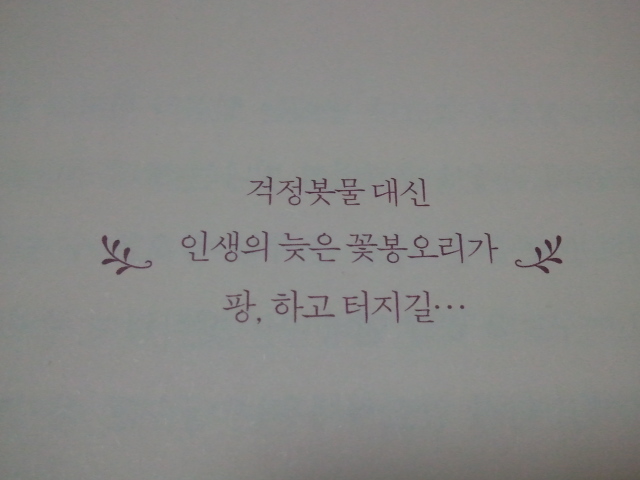 걱정봇물 대신
인생의 늦은 꽃봉오리가
팡, 하고 터지길…